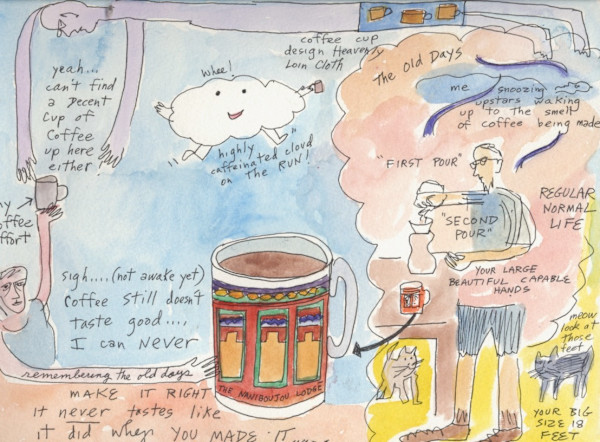 coffee cup
design Heavenly
Loin Cloth
The Old Days
me snoozing
upstars waking
up to the smell
of coffee being made
yeah...
can't find
a Decent
Cup of
Coffee
up here
either!
whee!
highly
caffeinated cloud
on the RUN!
"FIRST POUR"
"SECOND
POUR"
REGULAR
NORMAL
LIFE
YOUR LARGE
BEAUTIFUL CAPABLE
HANDS
coffee
effort
sigh....(not awake yet)
Coffee still doesn't
taste good....,
I can Never
remembering the old days
MAKE IT RIGHT
it never tastes like
it did when YOU MADE IT
THE NANIBOUJOU LODGE
meow
look at
those
feet
YOUR BIG
SIZE 13
FEET